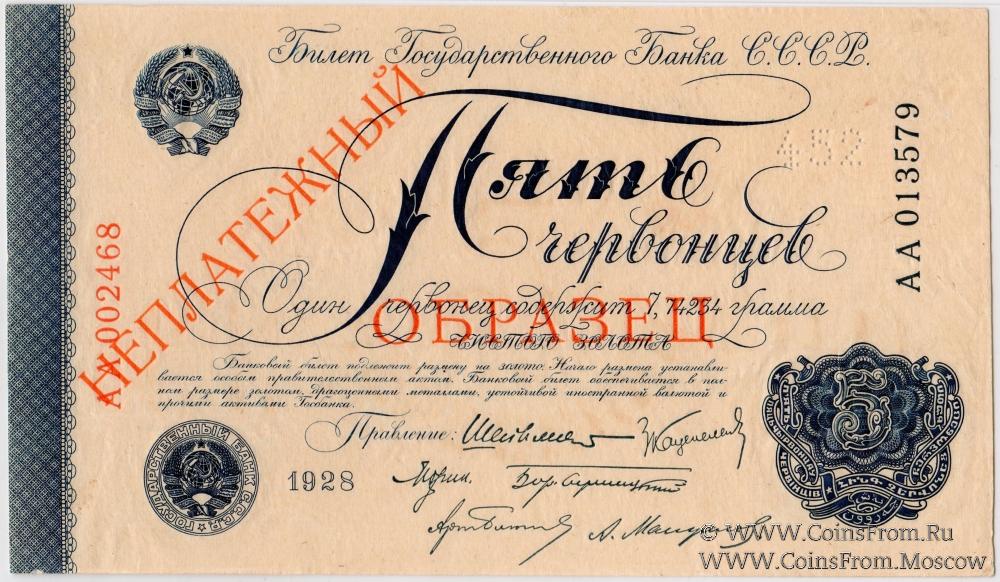 Билет Государственного Банка С.С.С.Р.
НЕПЛАТЕЖНЫЙ
452
АА 013579
Пять
червонцев
002468
Один червонец содержит 7,74234 грамма
ОБРАЗЕЦ
чистого золота
Банковый билет подлежит размену на золото. Начало размена устанавли-
вается особым правительственным актом. Банковый билет обеспечивается в пол-
ном размере золотом, драгоценными металлами, устойчивой иностранной валютой и
прочими активами Госбанка.
Правление:
5
ГОСУДАРСТВЕННЫЙ БАНК С.С.С.Р.
1928
© WWW.CoinsFrom.Ru
WWW.CoinsFrom.Moscow